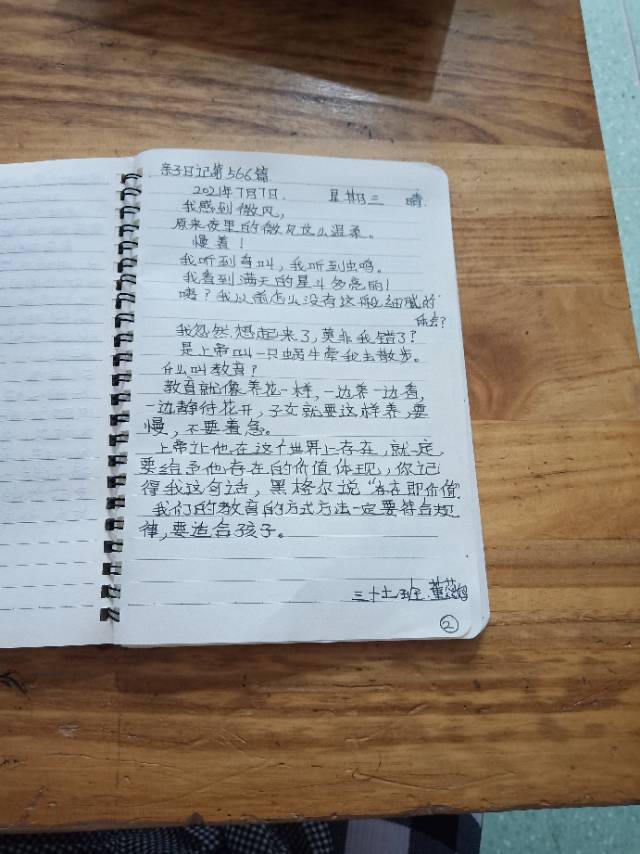 亲子日记第566篇
2021年7月7日. 星期三 晴.
我感到微风,
原来夜里的微风这么温柔。
慢着!
我听到鸟叫,我听到虫鸣。
我看到满天的星斗多亮丽!
咦?我以前怎么没有这般细腻的
体会?
我忽然想起来了,莫非我错了?
是上帝叫一只蜗牛牵我去散步。
什么叫教育?
教育就像养花一样,一边养一边看,
一边静待花开,子女就要这样养,要
慢,不要着急。
上帝让他在这个世界上存在,就一定
要给予他存在的价值体现,你记
得我这句话,黑格尔说“存在即价值”
我们的教育的方式方法一定要符合规
律,要适合孩子。
三十七班.董
②